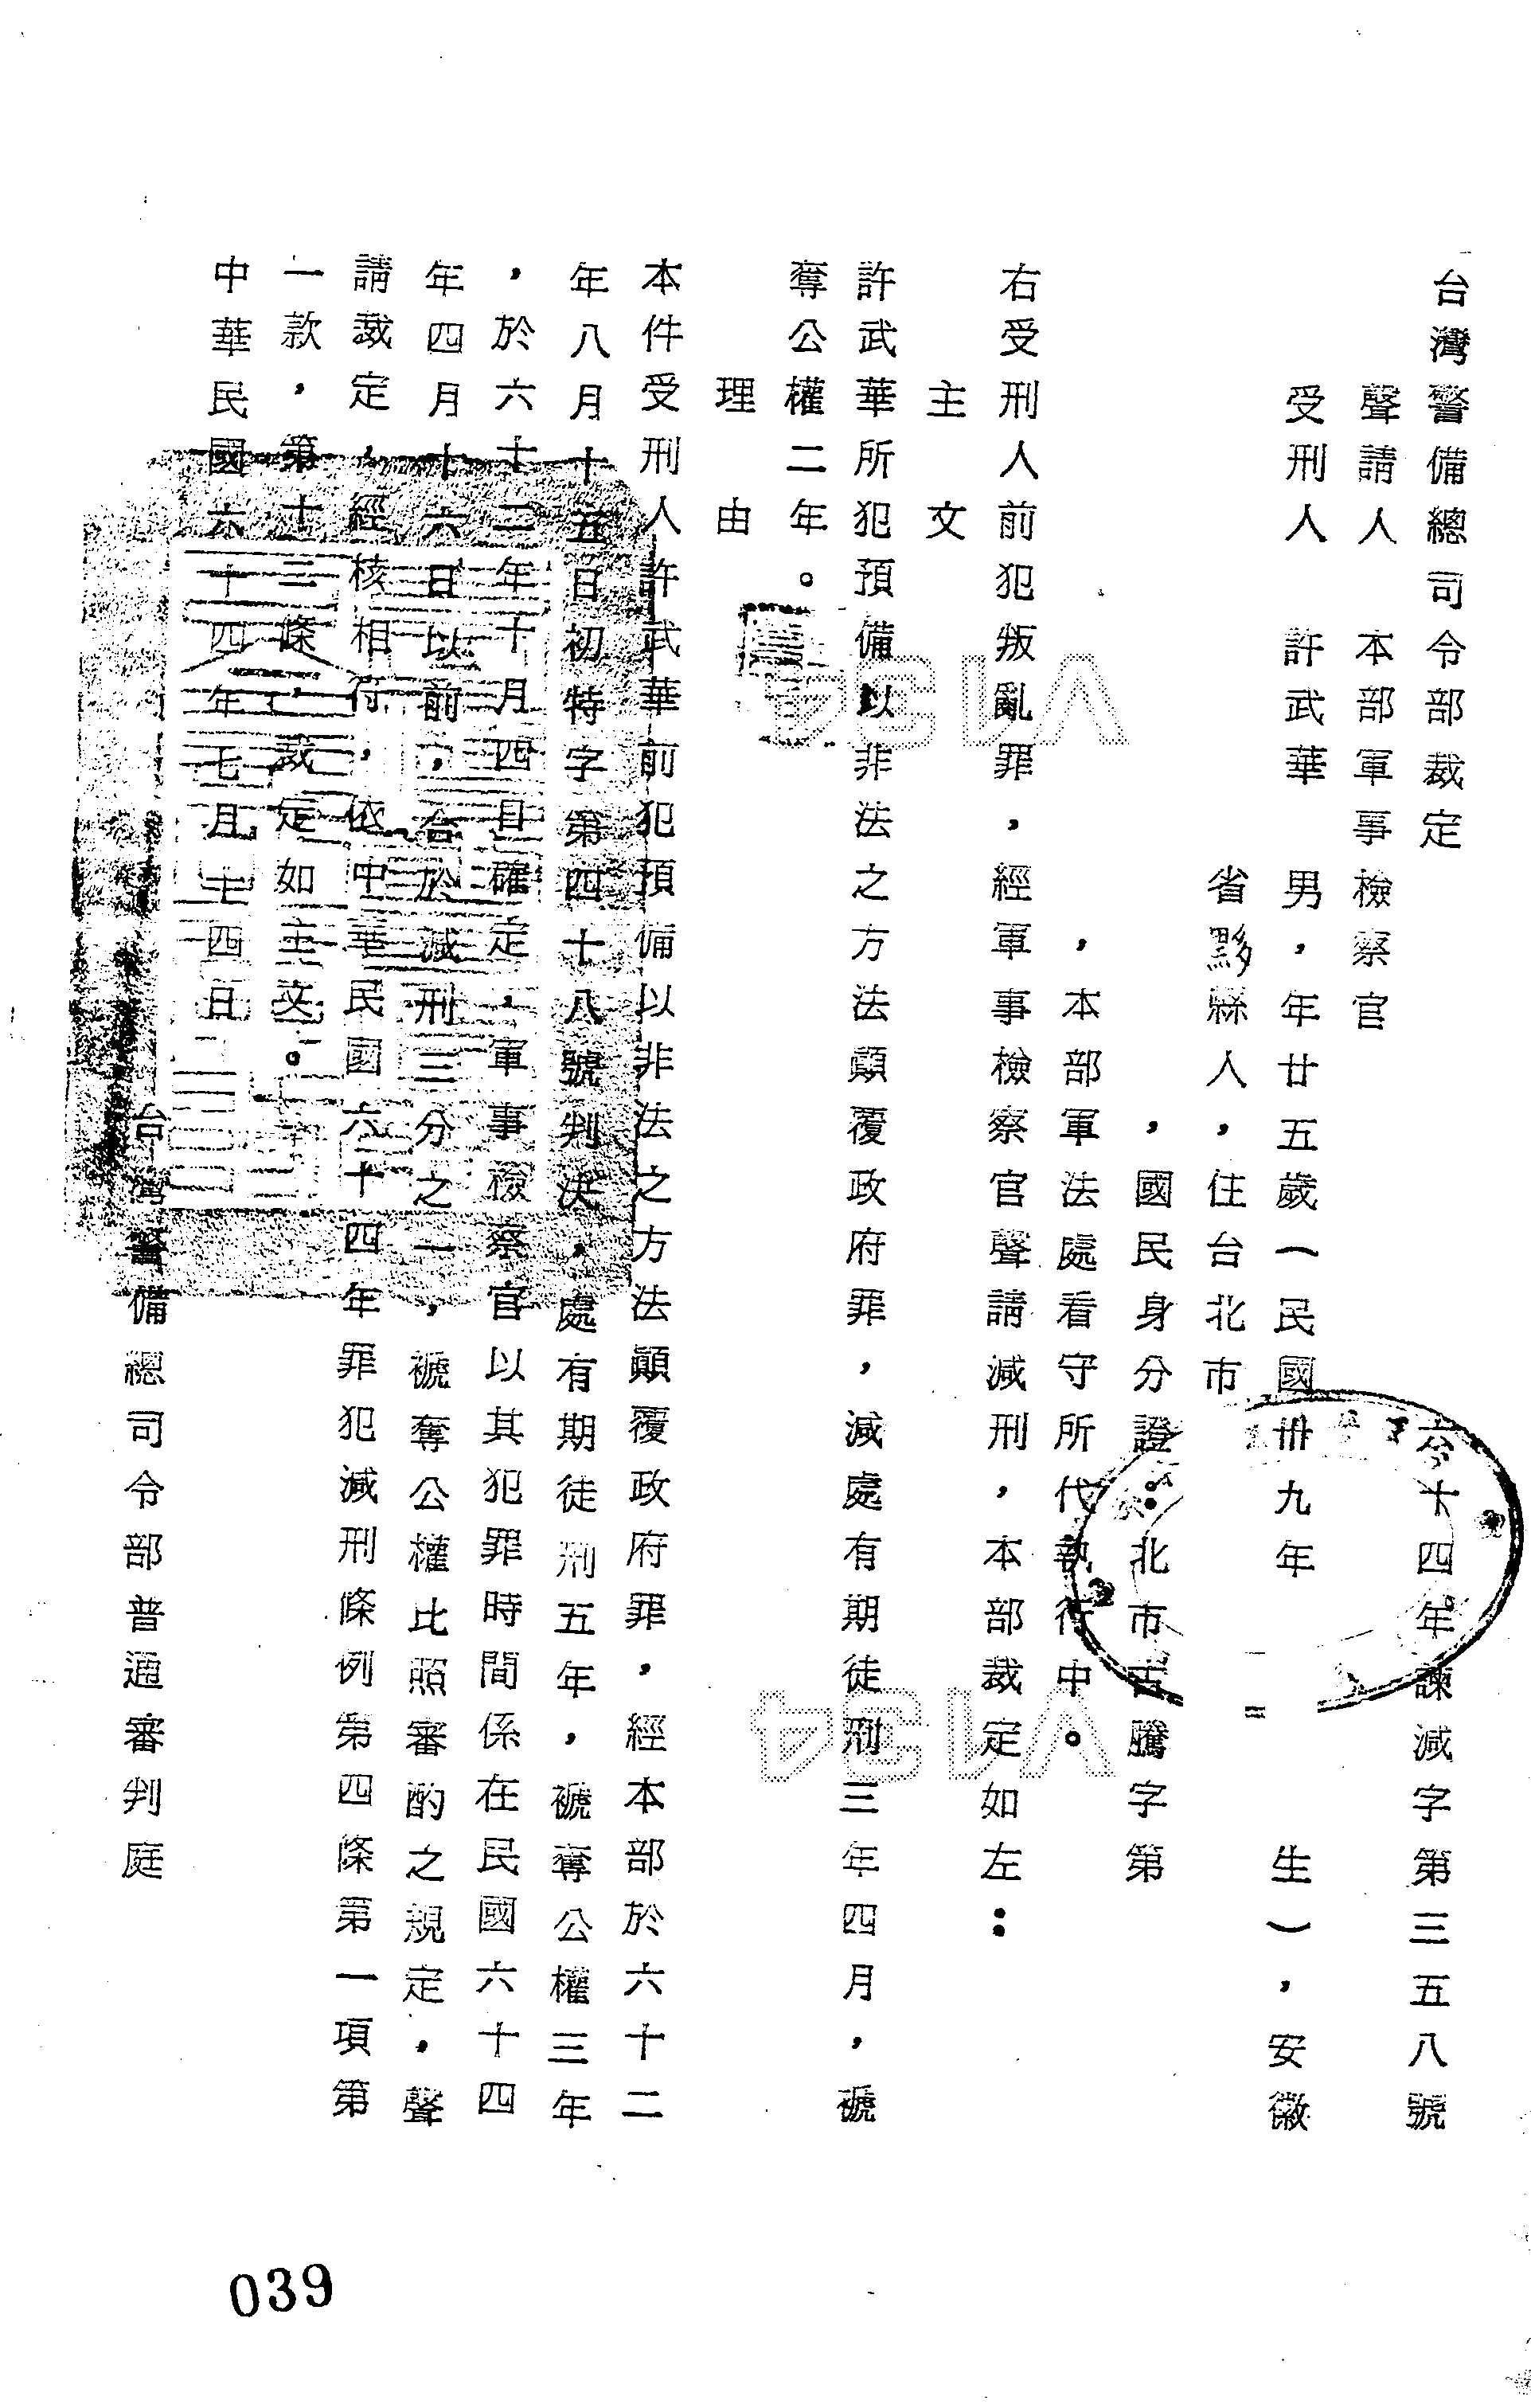 台灣警備總司令部裁定
六十四年諫減字第三五八號
聲請人 本部軍事檢察官
受刑人 許武華 男，年廿五歲（民國卅九年 生），安徽
省黟縣人，住台北市
，國民身分證：北市古騰字第
，本部軍法處看守所代執行中。
右受刑人前犯叛亂罪，經軍事檢察官聲請減刑，本部裁定如左：
主文
許武華所犯預備以非法之方法顛覆政府罪，減處有期徒刑三年四月，褫
奪公權二年。
理由
本件受刑人許武華前犯預備以非法之方法顛覆政府罪，經本部於六十二
年八月十五日初特字第四十八號判決，處有期徒刑五年，褫奪公權三年
，於六十二年十月四日確定，軍事檢察官以其犯罪時間係在民國六十四
年四月十六日以前，合於減刑三分之一，褫奪公權比照審酌之規定，聲
請裁定，經核相符，依中華民國六十四年罪犯減刑條例第四條第一項第
一款，第十三條，裁定如主文。
中華民國六十四年七月十四日
台灣警備總司令部普通審判庭
V1534
V1534
039